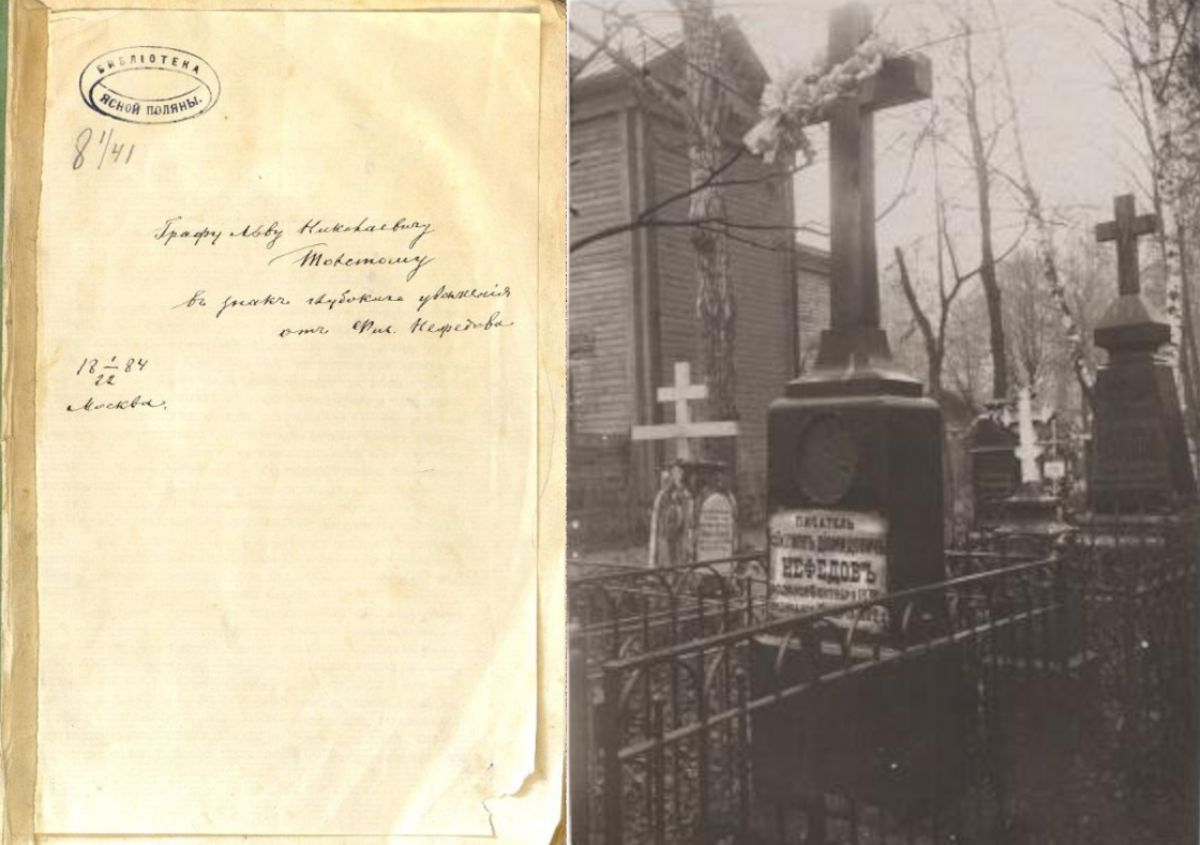 БИБЛІОТЕКА
ЯСНОЙ ПОЛЯНЫ.
8 1/41
Графу Льву Николаевичу
Толстому
въ знакъ глубокаго уваженія
отъ Фил. Нефедова
18 1/22 84
Москва.
ПИСАТЕЛЬ
НЕФЕДОВЪ